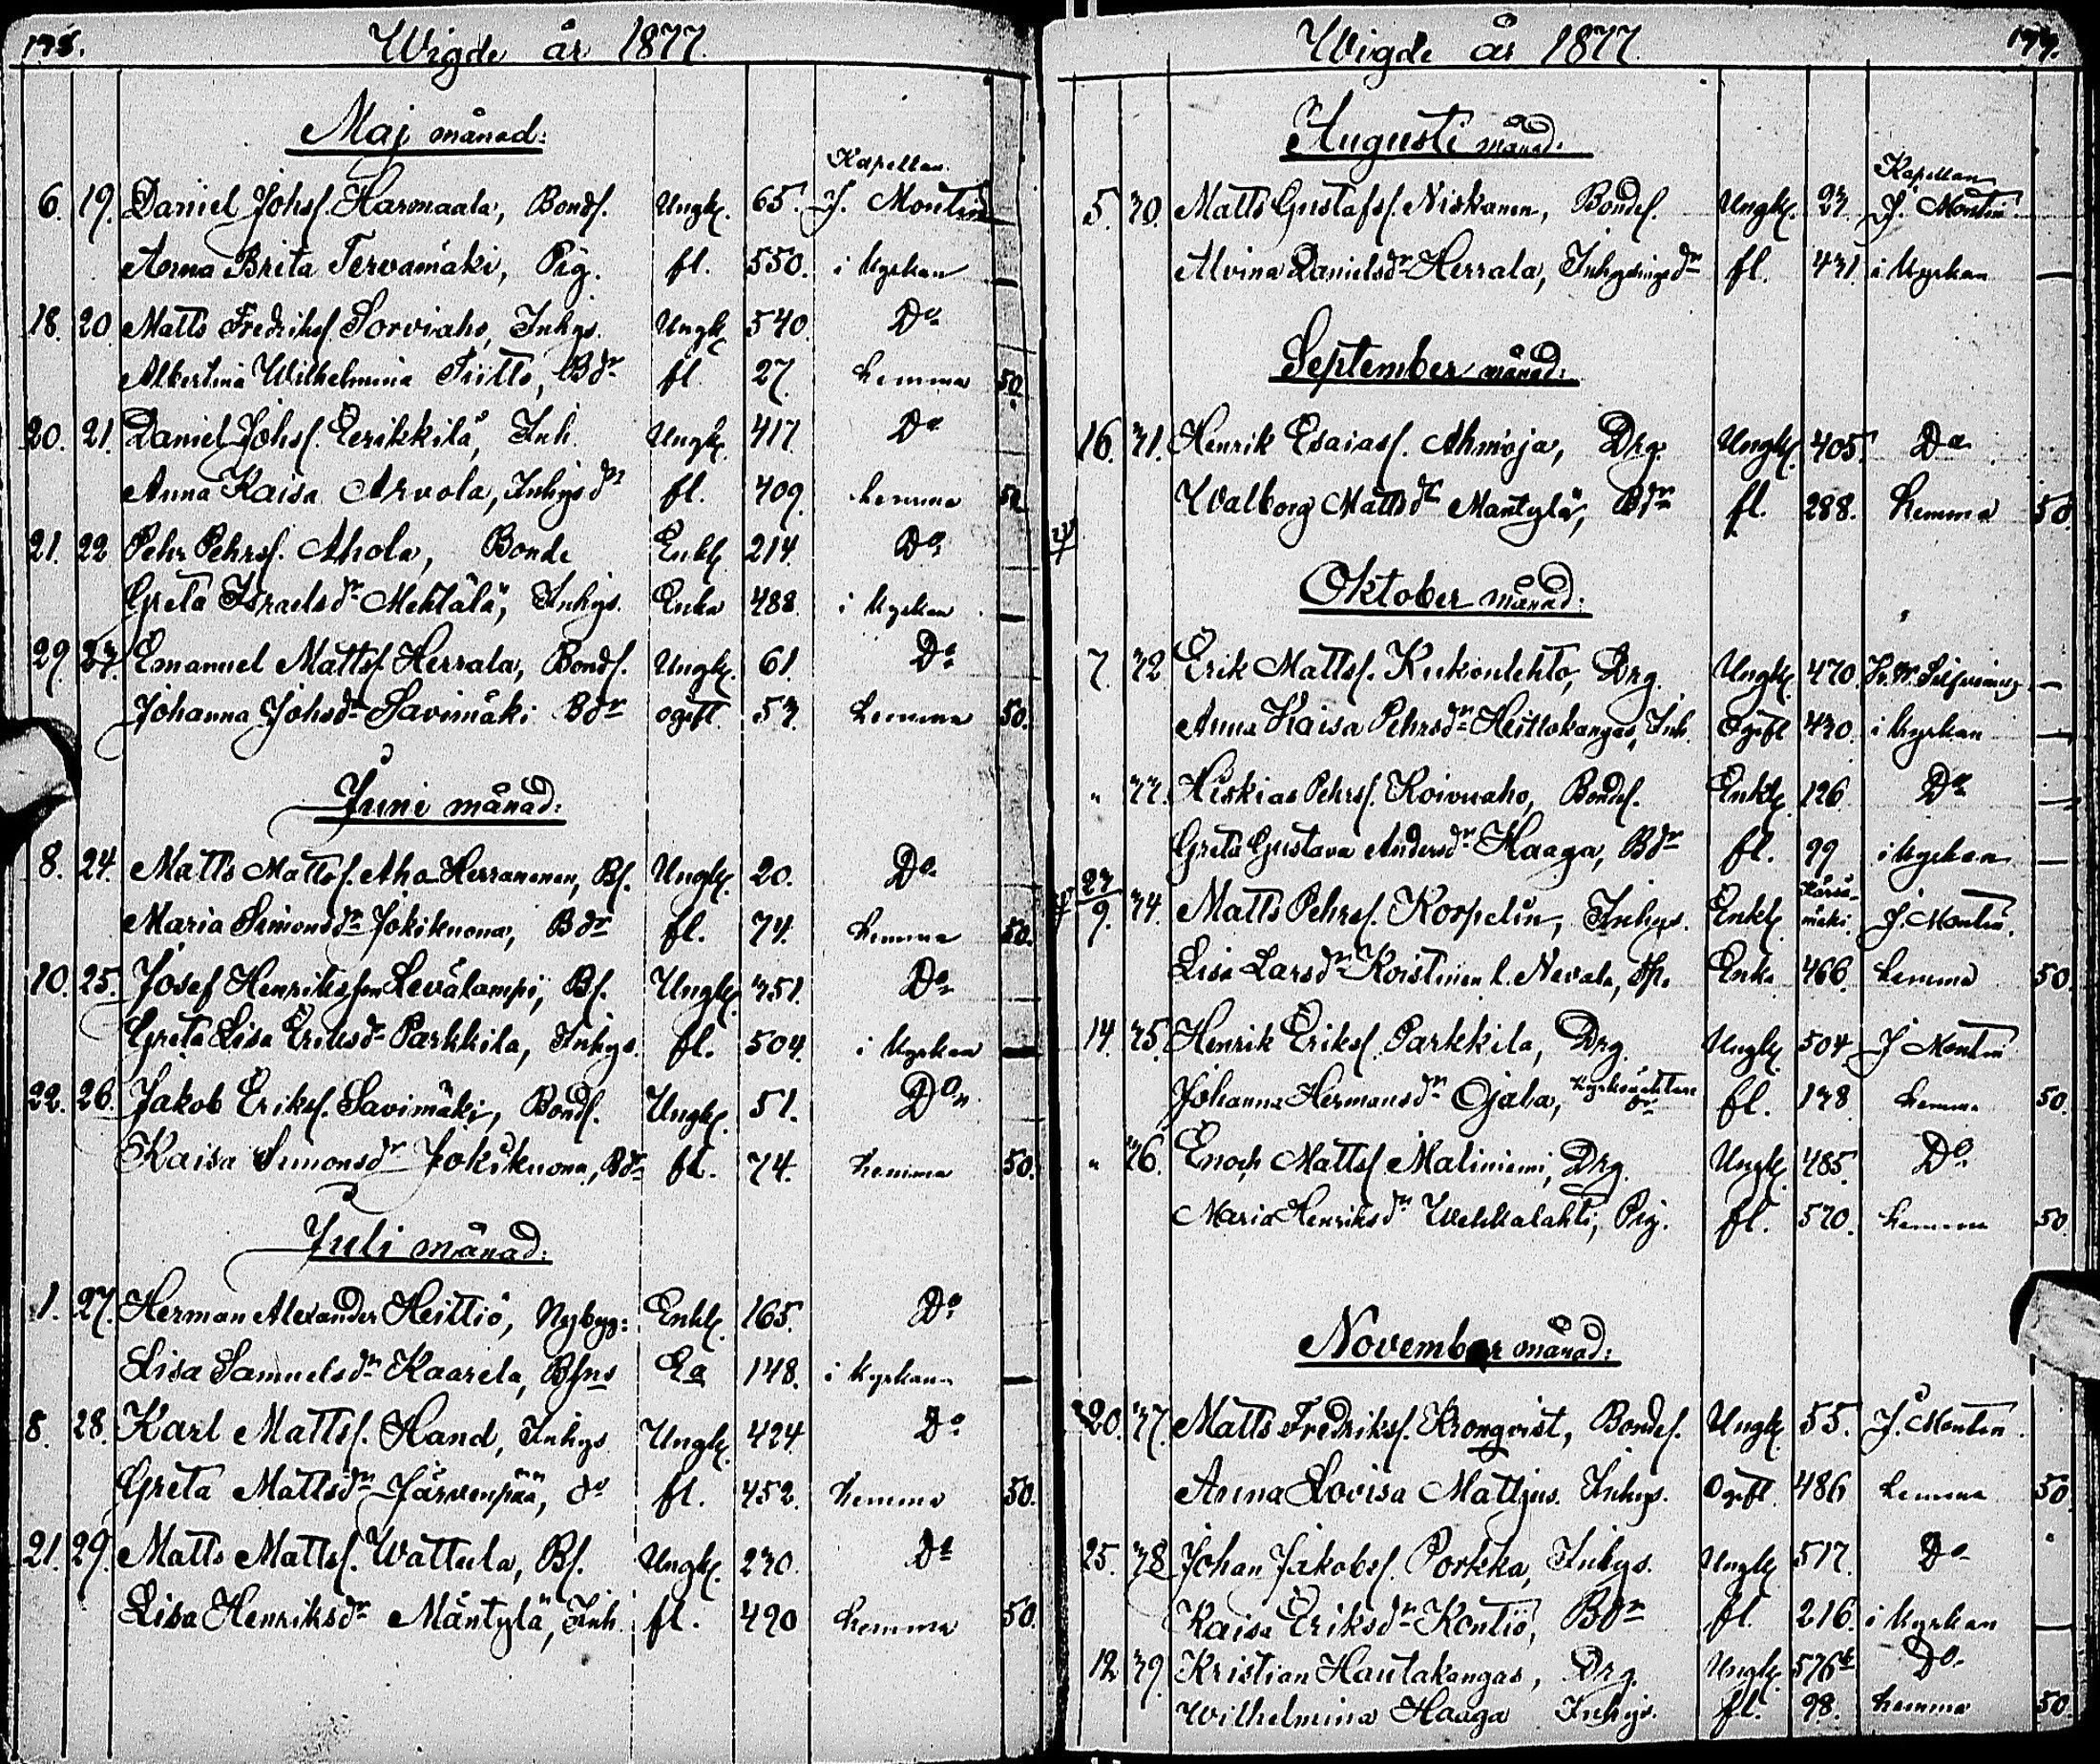 Wigde år 1877.
Maj månad:
Kapellan
6. 19. Daniel Johsf. Harmaala, Bondf. Ungk. 65. J. Montin
Anna Brita Tervamäki, Pig. fl. 550. i kyrkan —
18. 20. Matts Fredriksf. Sorviaho, Inhys. Ungk. 540. Do
Albertina Wilhelmina Tiitto, Bdr fl. 27. hemma 50.
20. 21. Daniel Johsf. Eerikkilä, Inh. Ungk. 417. Do
Anna Kaisa Arvola, Inhysdr fl. 409. hemma 50.
21. 22 Pehr Pehrsf. Ahola, Bonde Enkl. 214. Do
Greta Israelsdr Mehtälä, Inhys. Enka 488. i kyrkan —
29. 23. Emanuel Mattsf. Herrala, Bondf. Ungk. 61. Do
Johanna Johsdr Savimäki Bdr ogift 53. hemma 50.
Juni månad:
8. 24. Matts Mattsf. Aha-Herrannen, Bf. Ungk. 20. Do
Maria Simonsdr Jokikuona, Bdr fl. 74. hemma 50.
10. 25. Josef Henriksson Levälampi, Bf. Ungk. 351. Do
Greta Lisa Eriksdr Parkkila, Inhys. fl. 504. i kyrkan —
22. 26 Jakob Eriksf. Savimäki, Bondf. Ungk. 51. Do
Kaisa Simonsdr Jokikuona, Bdr fl. 74. hemma 50.
Juli månad:
1. 27. Herman Alexander Heittiö, Nybyg: Enkl. 165. Do
Lisa Samuelsdr Kaarela, Ea 148. i kyrkan —
8. 28. Karl Mattsf. Hand, Inhys Ungk. 424. Do
Greta Mattsdr Järvenpää, do fl. 452. hemma 50.
21. 29. Matts Mattsf. Wattula, Bf. Ungk. 230. Do
Lisa Henriksdr Mäntylä, Inh. fl. 490 hemma 50.
Wigde år 1877.
Augusti månad:
Kapellan
5. 30. Matts Gustafsf. Niskanen, Bondef. Ungk. 23. J. Montin.
Alvina Danielsdr Herrala, Inhysingsdr fl. 431 i kyrkan —
September månad:
16. 31. Henrik Esaiasf. Ahmoja, Drg. Ungk. 405. Do
Walborg Mattsdr Mäntylä, Bdr fl. 288. hemma 50.
Oktober månad:
7. 32 Erik Mattsf. Kukonlehto, Drg. Ungk. 470. —
Anna Kaisa Pehrsdr Heittokangas, Inh. Ogift 430. i kyrkan —
" 33. Hiskias Pehrsf. Koivuaho, Bondef. Enkl. 126. Do —
Greta Gustava Andersdr Haaga, Bdr fl. 99 i kyrkan —
23/9. 34. Matts Pehrsf. Korpelin, Inhys. Enkl. Kärsämäki. J. Montin.
Lisa Larsdr Koistinen l. Nevala, Enka 466. hemma 50.
14. 35. Henrik Eriksf. Parkkila, Drg. Ungk. 504. J Montin
Johanna Hermansdr Ojala, dr fl. 138. hemma 50.
" 36. Enoch Mattsf. Maliniemi, Drg. Ungk. 485. Do
Maria Henriksdr Wehkalahti, Pig. fl. 570. hemma 50.
November månad:
20. 37. Matts Fredriksf. Kronqvist, Bondef. Ungk. 55. J. Montin.
Anna Lovisa Mattjus. Inhys. Ogift. 486 hemma 50
25. 38 Johan Jakobsf. Porkka, Inhys. Ungk. 517. Do
Kaisa Eriksdr Kontio, Bdr fl. 216. i kyrkan —
12 39. Kristian Hautakangas, Drg. Ungk. 576 Do
Wilhelmina Haaga Inhys. fl. 98. hemma 50.